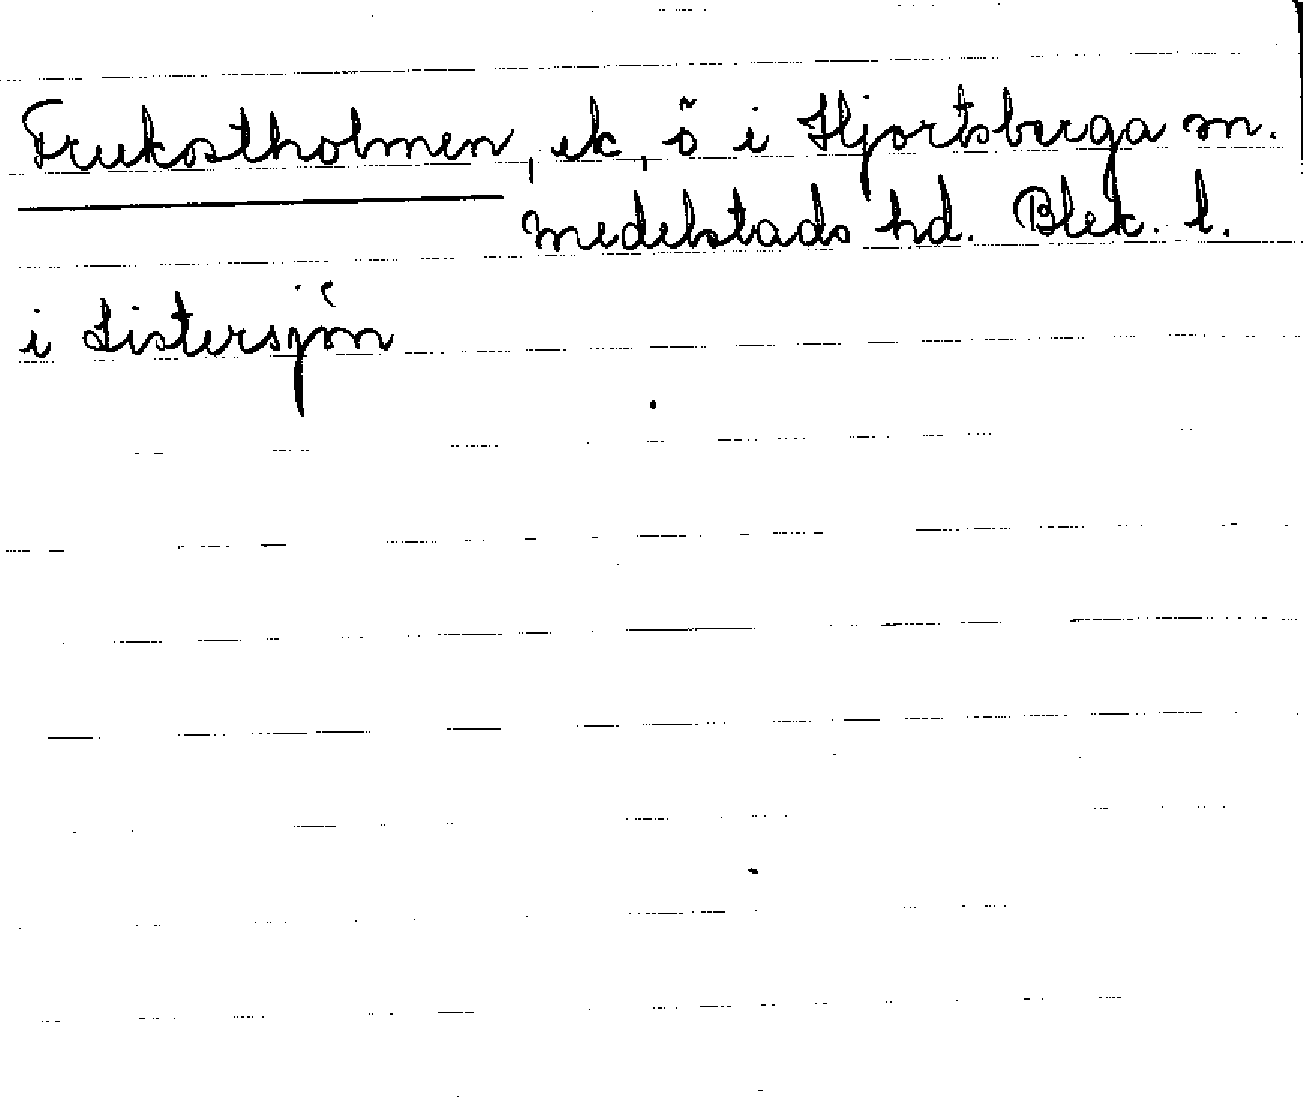 Frukostholmen, ek, ö i Hjortsberga sn.
Medelstads hd. Blek. l.
i Listersjön